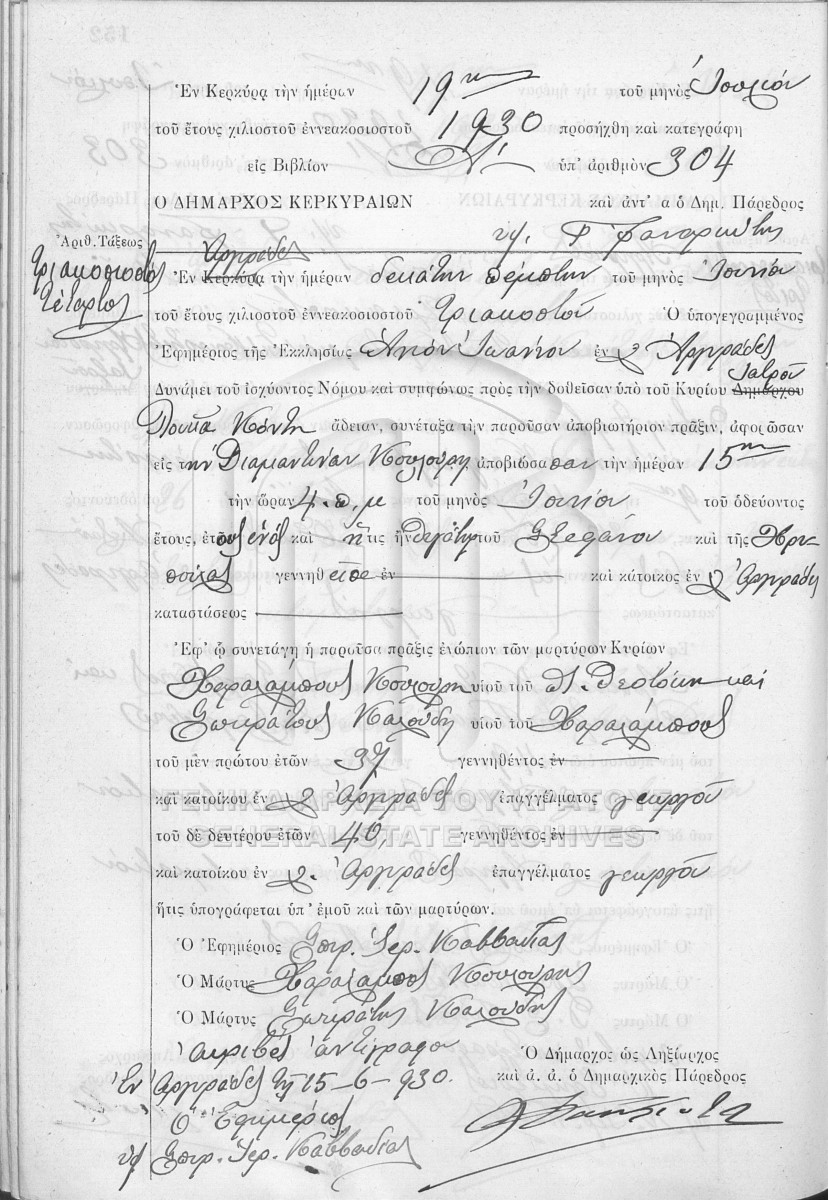 Ἐν Κερκύρᾳ τὴν ἡμέραν 19ην τοῦ μηνὸς Ἰουλίου
τοῦ ἔτους χιλιοστοῦ ἐννεακοσιοστοῦ 1930 προσήχθη καὶ κατεγράφη
εἰς Βιβλίον Α' ὑπ' ἀριθμὸν 304
Ο ΔΗΜΑΡΧΟΣ ΚΕΡΚΥΡΑΙΩΝ καὶ ἀντ' α ὁ Δημ. Πάρεδρος
Ἀριθ. Τάξεως
Τριακοσιοστὸς
τέταρτος
Ἀργυράδες
Ἐν Κερκύρᾳ τὴν ἡμέραν δεκάτην πέμπτην τοῦ μηνὸς Ἰουνίου
τοῦ ἔτους χιλιοστοῦ ἐννεακοσιοστοῦ τριακοστοῦ Ὁ ὑπογεγραμμένος
Ἐφημέριος τῆς Ἐκκλησίας Ἁγίου Ἰωάννου ἐν Ἀργυράδες
Ἰατροῦ
Δυνάμει τοῦ ἰσχύοντος Νόμου καὶ συμφώνως πρὸς τὴν δοθεῖσαν ὑπὸ τοῦ Κυρίου Δημάρχου
Λουκᾶ Κόντη ἄδειαν, συνέταξα τὴν παροῦσαν ἀποβιωτήριον πρᾶξιν, ἀφορῶσαν
εἰς την Διαμαντίναν Κουλούρη ἀποβιώσασαν τὴν ἡμέραν 15ην
τὴν ὥραν 4 π.μ τοῦ μηνὸς Ἰουνίου τοῦ ὁδεύοντος
ἔτους, ἐτοῦς ἑνὸς καὶ ἥτις ἦν θυγάτηρ τοῦ Στεφάνου καὶ τῆς Χρυ-
σούλας γεννηθεῖσα ἐν καὶ κάτοικος ἐν Ἀργυράδες
καταστάσεως
Ἐφ' ᾧ συνετάγη ἡ παροῦσα πρᾶξις ἐνώπιον τῶν μαρτύρων Κυρίων
Χαραλάμπους Κουλούρη υἱοῦ τοῦ Θεοτόκη καὶ
Σωκράτους Καλούδη υἱοῦ τοῦ Χαραλάμπους
τοῦ μὲν πρώτου ἐτῶν 37 γεννηθέντος ἐν
καὶ κατοίκου ἐν Ἀργυράδες ἐπαγγέλματος γεωργοῦ
ΓΕΝΙΚΑ ΑΡΧΕΙΑ ΤΟΥ ΚΡΑΤΟΥΣ
τοῦ δὲ δευτέρου ἐτῶν 40, γεννηθέντος ἐν
GENERAL STATE ARCHIVES
καὶ κατοίκου ἐν Ἀργυράδες ἐπαγγέλματος γεωργοῦ
ἥτις ὑπογράφεται ὑπ' ἐμοῦ καὶ τῶν μαρτύρων.
Ὁ Ἐφημέριος Σπυρ. Ἱερ. Καββαδίας
Ὁ Μάρτυς Χαράλαμπος Κουλούρης
Ὁ Μάρτυς Σωκράτης Καλούδης
Ἀκριβὲς ἀντίγραφον
Ὁ Δήμαρχος ὡς Ληξίαρχος
Ἐν Ἀργυράδες τῇ 15-6-930.
καὶ ἀ. ἀ. ὁ Δημαρχικὸς Πάρεδρος
Ὁ Ἐφημέριος
υφ Σπυρ. Ἱερ. Καββαδίας